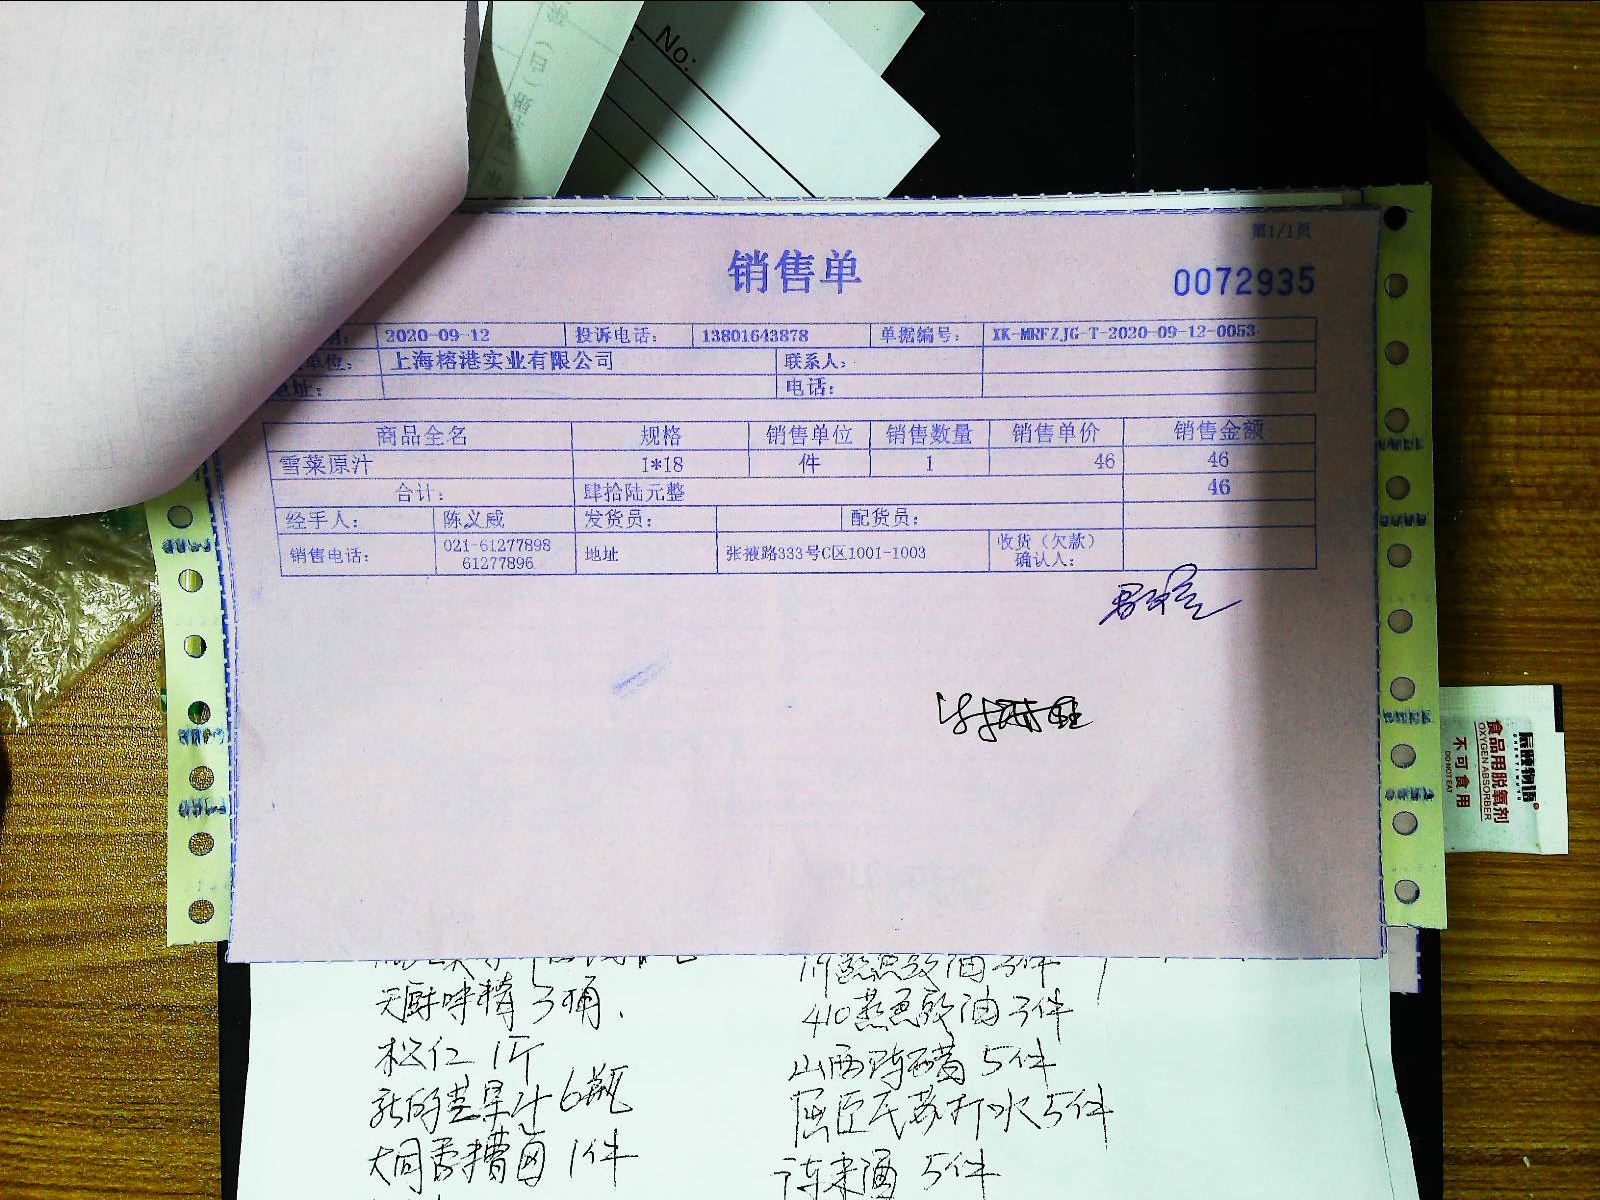 No:
第1/1页
销售单
0072935
2020-09-12 投诉电话: 13801643878 单据编号: XK-MRFZJG-T-2020-09-12-0053
单位: 上海榕港实业有限公司 联系人:
地址: 电话:
商品全名 规格 销售单位 销售数量 销售单价 销售金额
雪菜原汁 1*18 件 1 46 46
合计: 肆拾陆元整 46
经手人: 陈义威 发货员: 配货员:
销售电话: 021-61277898 61277896 地址 张掖路333号C区1001-1003 收货（欠款）确认人:
食品用脱氧剂
OXYGEN ABSORBER
不可食用
DO NOT EAT
天厨味精 3桶.
松仁 1斤
6瓶
大同香糟卤 1件
410蒸鱼豉油 3件
山西陈醋 5件
屈臣氏苏打水 5件
5件